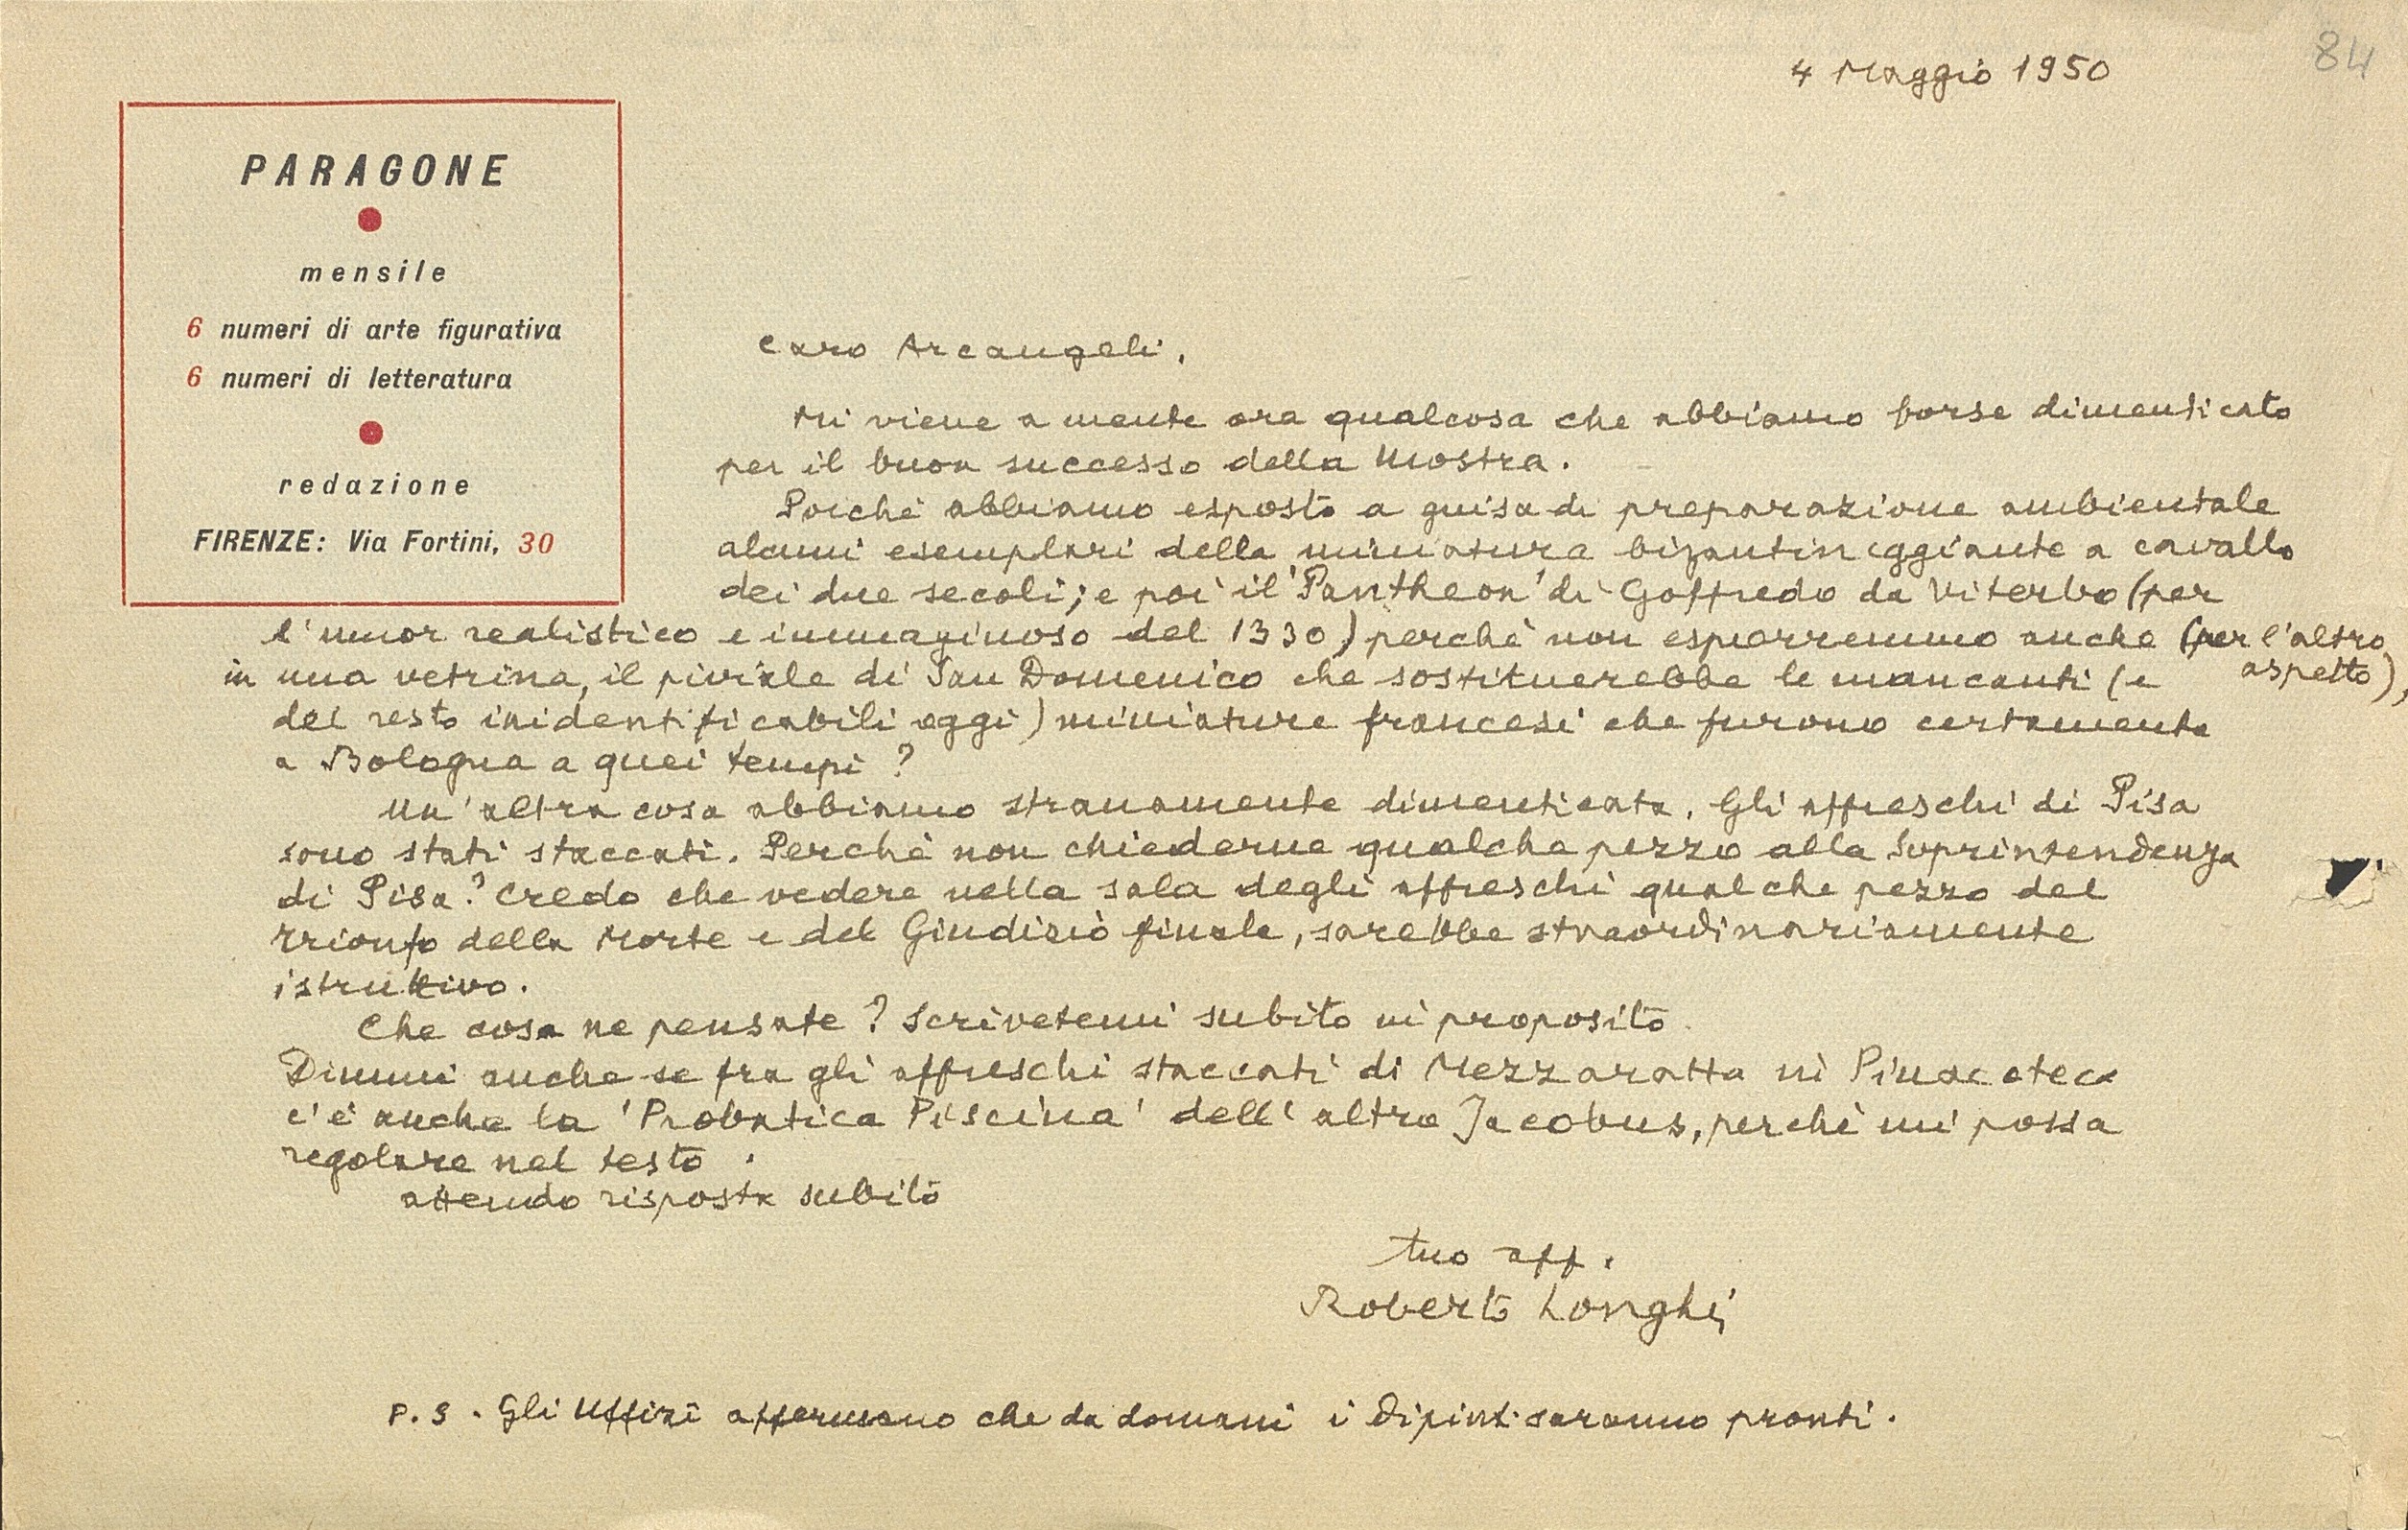 84
4 Maggio 1950
PARAGONE
mensile
6 numeri di arte figurativa
6 numeri di letteratura
redazione
FIRENZE: Via Fortini, 30
Caro Arcangeli,
Mi viene a mente ora qualcosa che abbiamo forse dimenticato
per il buon successo della Mostra.
Poichè abbiamo esposto a guisa di preparazione ambientale
alcuni esemplari della miniatura bizantineggiante a cavallo
dei due secoli; e poi il 'Pantheon' di Goffredo da Viterbo (per
l'umor realistico e immaginoso del 1330) perchè non esporremmo anche (per l'altro
aspetto),
in una vetrina, il piviale di San Domenico che sostituerebbe le mancanti (e
del resto inidentificabili oggi) miniature francesi che furono certamente
a Bologna a quei tempi?
Un'altra cosa abbiamo stranamente dimenticata. Gli affreschi di Pisa
sono stati staccati. Perchè non chiederne qualche pezzo alla Soprintendenza
di Pisa? Credo che vedere nella sala degli affreschi qualche pezzo del
Trionfo della Morte e del Giudizio finale, sarebbe straordinariamente
istruttivo.
Che cosa ne pensate? Scrivetemi subito in proposito.
Dimmi anche se fra gli affreschi staccati di Mezzaratta in Pinacoteca
c'è anche la 'Probatica Piscina' dell'altro Jacobus, perchè mi possa
regolare nel testo.
attendo risposta subito
tuo aff.
Roberto Longhi
P.S. Gli Uffizi affermano che da domani i dipinti saranno pronti.